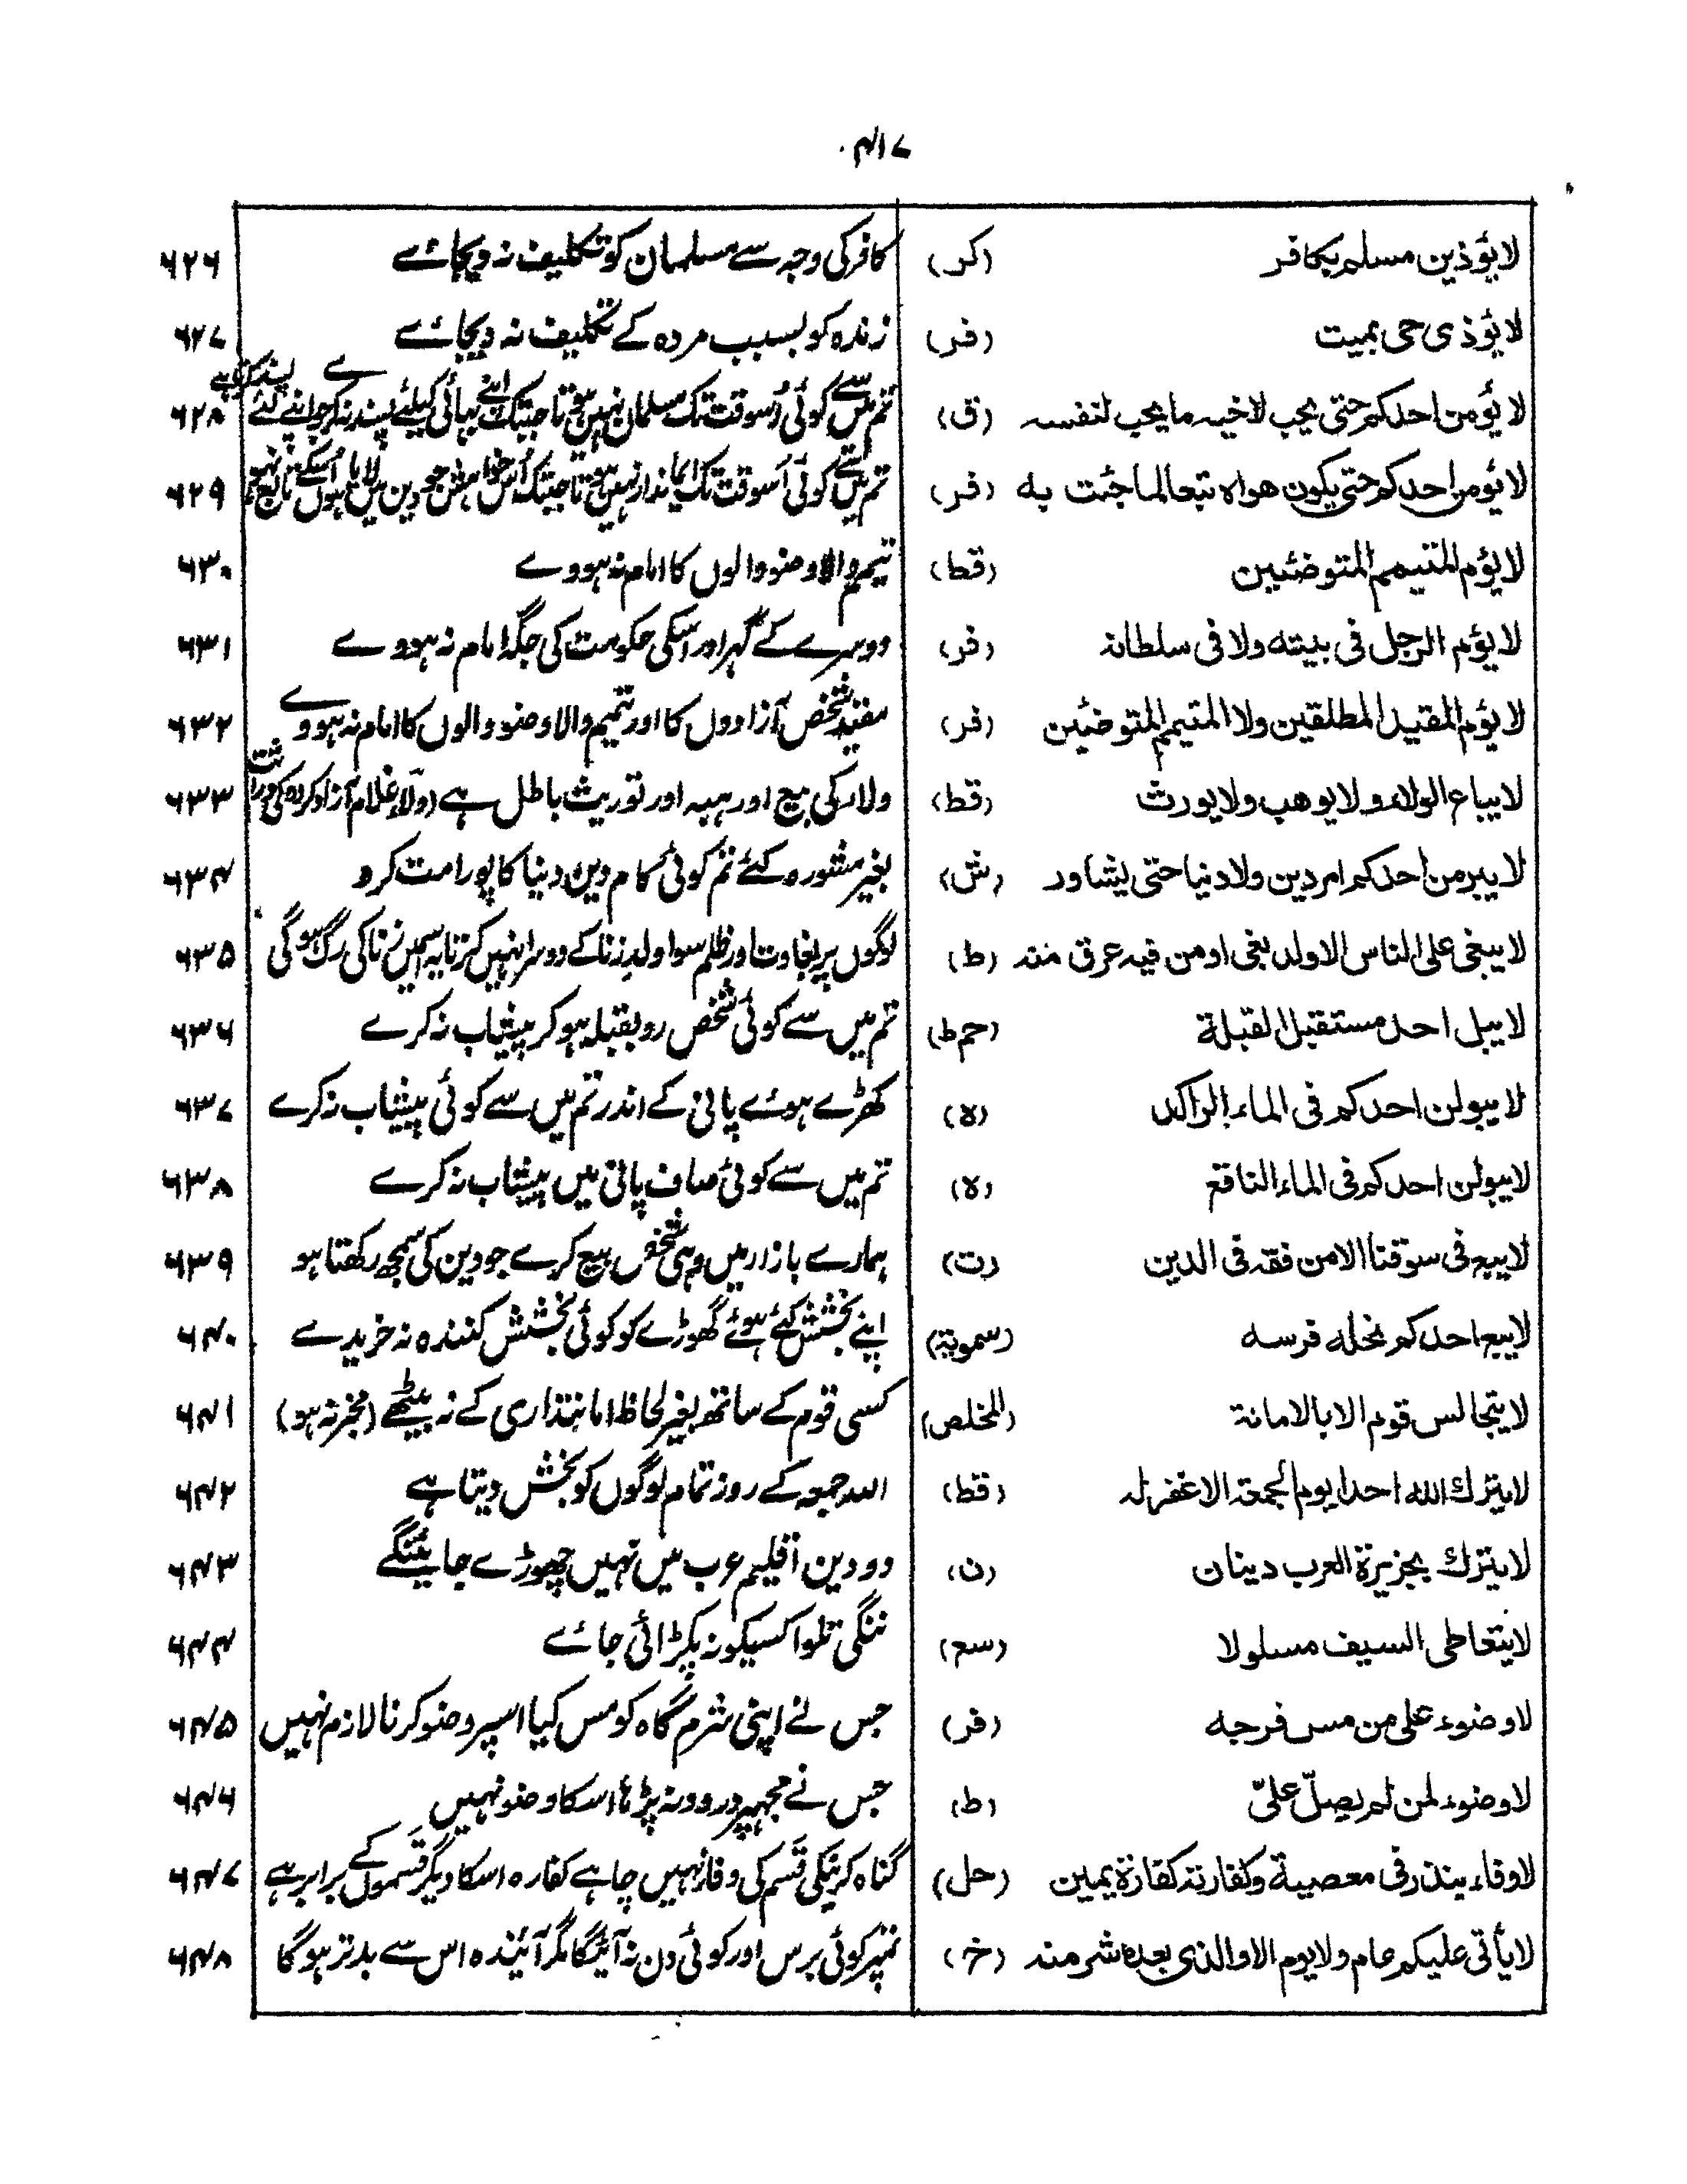 ۴۱۷
لا يؤذين مسلم بكافر (كر) كافر کی وجہ سے مسلمان کو تکلیف نہ دیجائے ۶۲۶
لا يؤذى حى بميت (فر) زندہ کو بسبب مردہ کے تکلیف نہ دیجائے ۶۲۷
لا يؤمن احدكم حتى يحب لاخيه ما يحب لنفسه (ق) تم میں سے کوئی اُسوقت تک مسلمان نہیں ہوتا جبتک اپنے بھائی کیلئے پسند نہ کرے جو اپنے لئے پسند کرتا ہے ۶۲۸
لا يؤمن احدكم حتى يكون هواه تبعا لما جئت به (فر) تم میں سے کوئی اُسوقت تک ایماندار نہیں ہوتا جبتک اُس خواہش جو دین میں لایا ہوں اُسکے تابع نہو ۶۲۹
لا يؤم المتيمم المتوضئين (قط) تیمم والا وضو والوں کا امام نہ ہووے ۶۳۰
لا يؤم الرجل فى بيته ولا فى سلطانه (فر) دوسرے کے گہر اور اسکی حکومت کی جگہ امام نہ ہووے ۶۳۱
لا يؤم المقيد المطلقين ولا المتيمم المتوضئين (فر) مقید شخص آزادوں کا اور تیمیم والا وضو والوں کا امام نہ ہووے ۶۳۲
لا يباع الولاء ولا يوهب ولا يورث (قط) ولاء کی بیع اور ہبہ اور توریث باطل ہے (ولاء غلام آزاد کردہ کی وراثت ۶۳۳
لا يبرمن احدكم امر دين ولا دنيا حتى يشاور (ش) بغیر مشورہ کئے تم کوئی کام دین دنیا کا پورا مت کرو ۶۳۴
لا يبغى على الناس الا ولد بغى او من فيه عرق منه (ط) لوگوں پر بغاوت اور ظلم سوا ولدِ زنا کے دوسرا نہیں کرتا یہ اسمیں زنا کی رگ ہوگی ۶۳۵
لا يبل احد مستقبل القبلة (حم ط) تم میں سے کوئی شخص رو بقبلہ ہو کر پیشاب نہ کرے ۶۳۶
لا يبولن احدكم فى الماء الراكد (ه) کھڑے ہوئے پانی کے اندر تم میں سے کوئی پیشاب نہ کرے ۶۳۷
لا يبولن احدكم فى الماء الناقع (ه) تم میں سے کوئی صاف پانی میں پیشاب نہ کرے ۶۳۸
لا يبع فى سوقنا الا من فقه فى الدين (ت) ہمارے بازار میں وہی شخص بیع کرے جو دین کی سمجھ رکھتا ہو ۶۳۹
لا يبع احدكم نحله فرسه (سمويه) اپنے بخشش کئے ہوئے گھوڑے کو کوئی بخشش کنندہ نہ خریدے ۶۴۰
لا يتجالس قوم الا بالامانة (المخلص) کسی قوم کے ساتھ بغیر لحاظ امانتداری کے نہ بیٹھے (مخبر نہ ہو) ۶۴۱
لا يترك الله احدا يوم الجمعة الا غفر له (قط) اللہ جمعہ کے روز تمام لوگوں کو بخش دیتا ہے ۶۴۲
لا يترك بجزيرة العرب دينان (ن) دو دین اقلیم عرب میں نہیں چھوڑے جائینگے ۶۴۳
لا يتعاطى السيف مسلولا (سع) ننگی تلوا کسیکو نہ پکڑائی جائے ۶۴۴
لا وضوء على من مس فرجه (فر) جس نے اپنی شرم گاہ کو مس کیا اسپر وضو کرنا لازم نہیں ۶۴۵
لا وضوء لمن لم يصل علىّ (ط) جس نے مجہپر درود نہ پڑہا اسکا وضو نہیں ۶۴۶
لا وفاء بنذر فى معصية وكفارته كفارة يمين (حل) گناہ کرنیکی قسم کی وفا نہیں چاہے کفارہ اسکا دیگر قسموں کے برابر ہے ۶۴۷
لا يأتى عليكم عام ولا يوم الا والذى بعده شر منه (خ) تمپر کوئی برس اور کوئی دن نہ آئیگا مگر آئیندہ اس سے بدتر ہوگا ۶۴۸